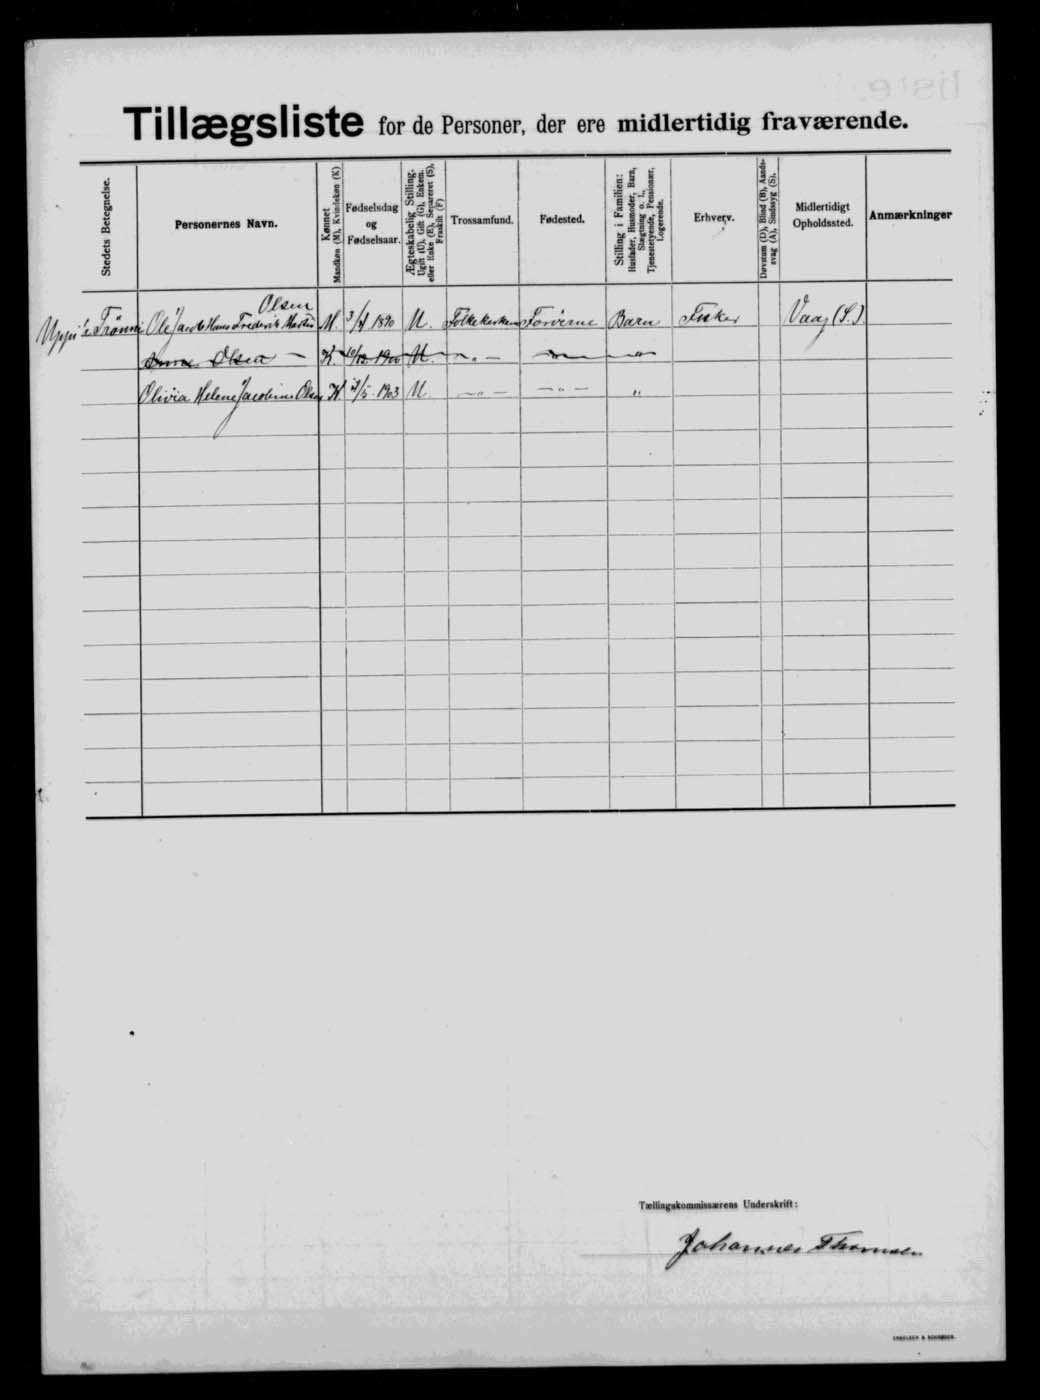 Tillægsliste for de Personer, der ere midlertidig fraværende.
Stedets Betegnelse.
Personernes Navn.
Kønnet
Mandkøn (M), Kvindekøn (K)
Fødselsdag
og
Fødselsaar.
Ægteskabelig Stilling.
Ugift (U), Gift (G), Enkem.
eller Enke (E), Separeret (S),
Fraskilt (F)
Trossamfund.
Fødested.
Stilling i Familien:
Husfader, Husmoder, Barn,
Slægtning o. l.,
Tjenestetyende, Pensionær,
Logerende.
Erhverv.
Døvstum (D), Blind (B), Aands-
svag (A), Sindssyg (S).
Midlertidigt
Opholdssted.
Anmærkninger
Olsen
Uppi i Trönni Ole Jacob Hans Frederik Martin M. 3/4 1890 U. Folkekirken Færøerne Barn Fisker Vaag (S.)
Olsen — K. 1900 U. — „ —
Olivia Helene Jacobine Olsen K 1903 U — „ — — „ — „
Tællingskommissærens Underskrift:
Johannes Thomsen